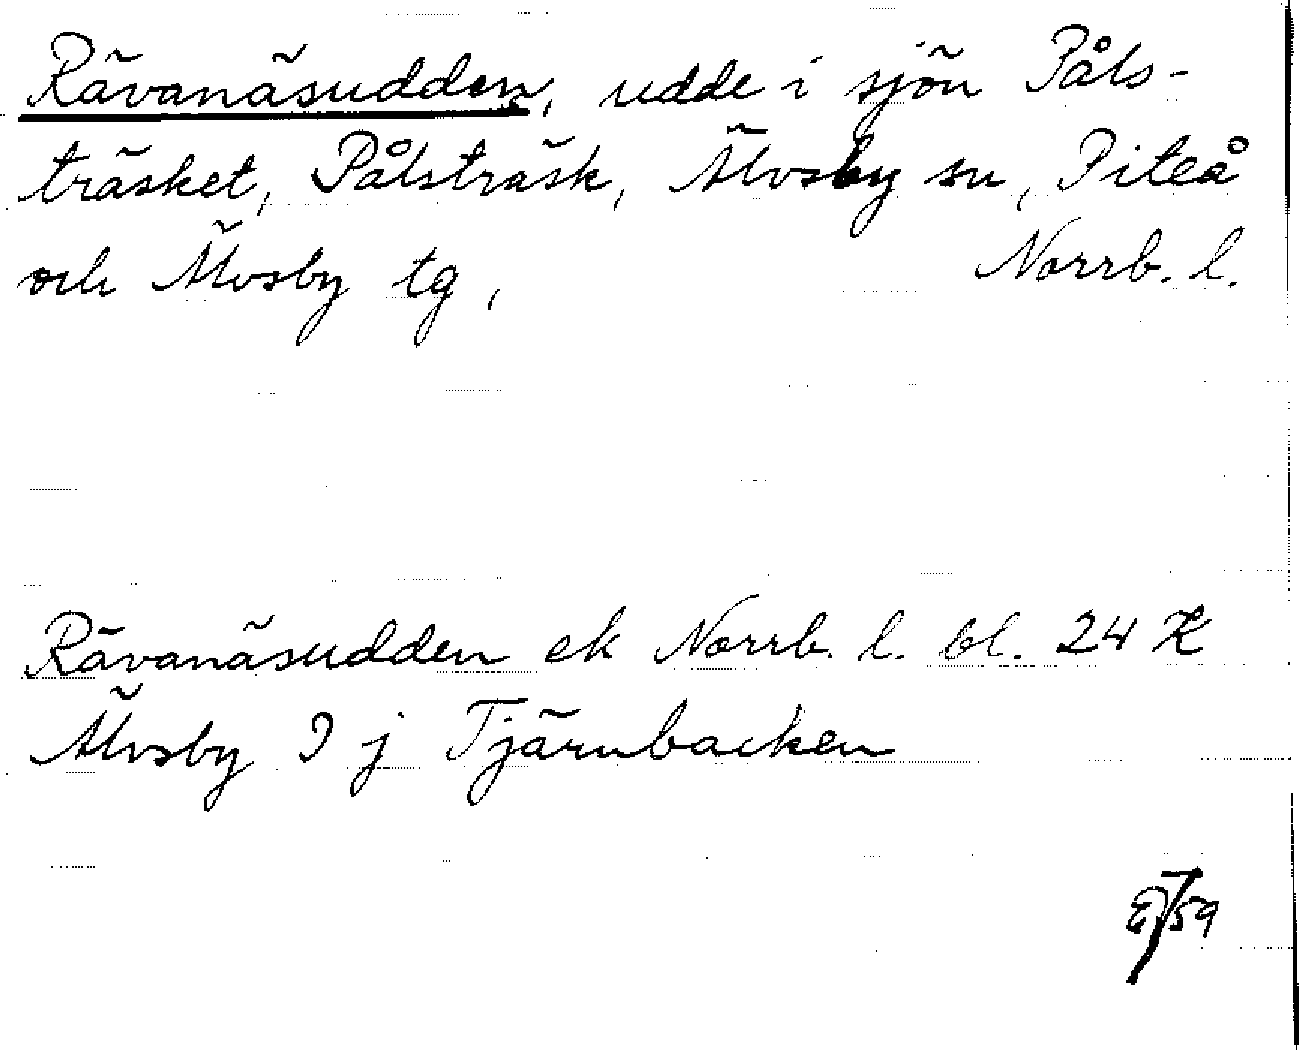 Rävanäsudden, udde i sjön Påls-
träsket, Pålsträsk, Älvsby sn, Piteå
och Älvsby tg, Norrb. l.
Rävanäsudden ek Norrb. l. bl. 24
Älvsby I j Tjärnbacken
59